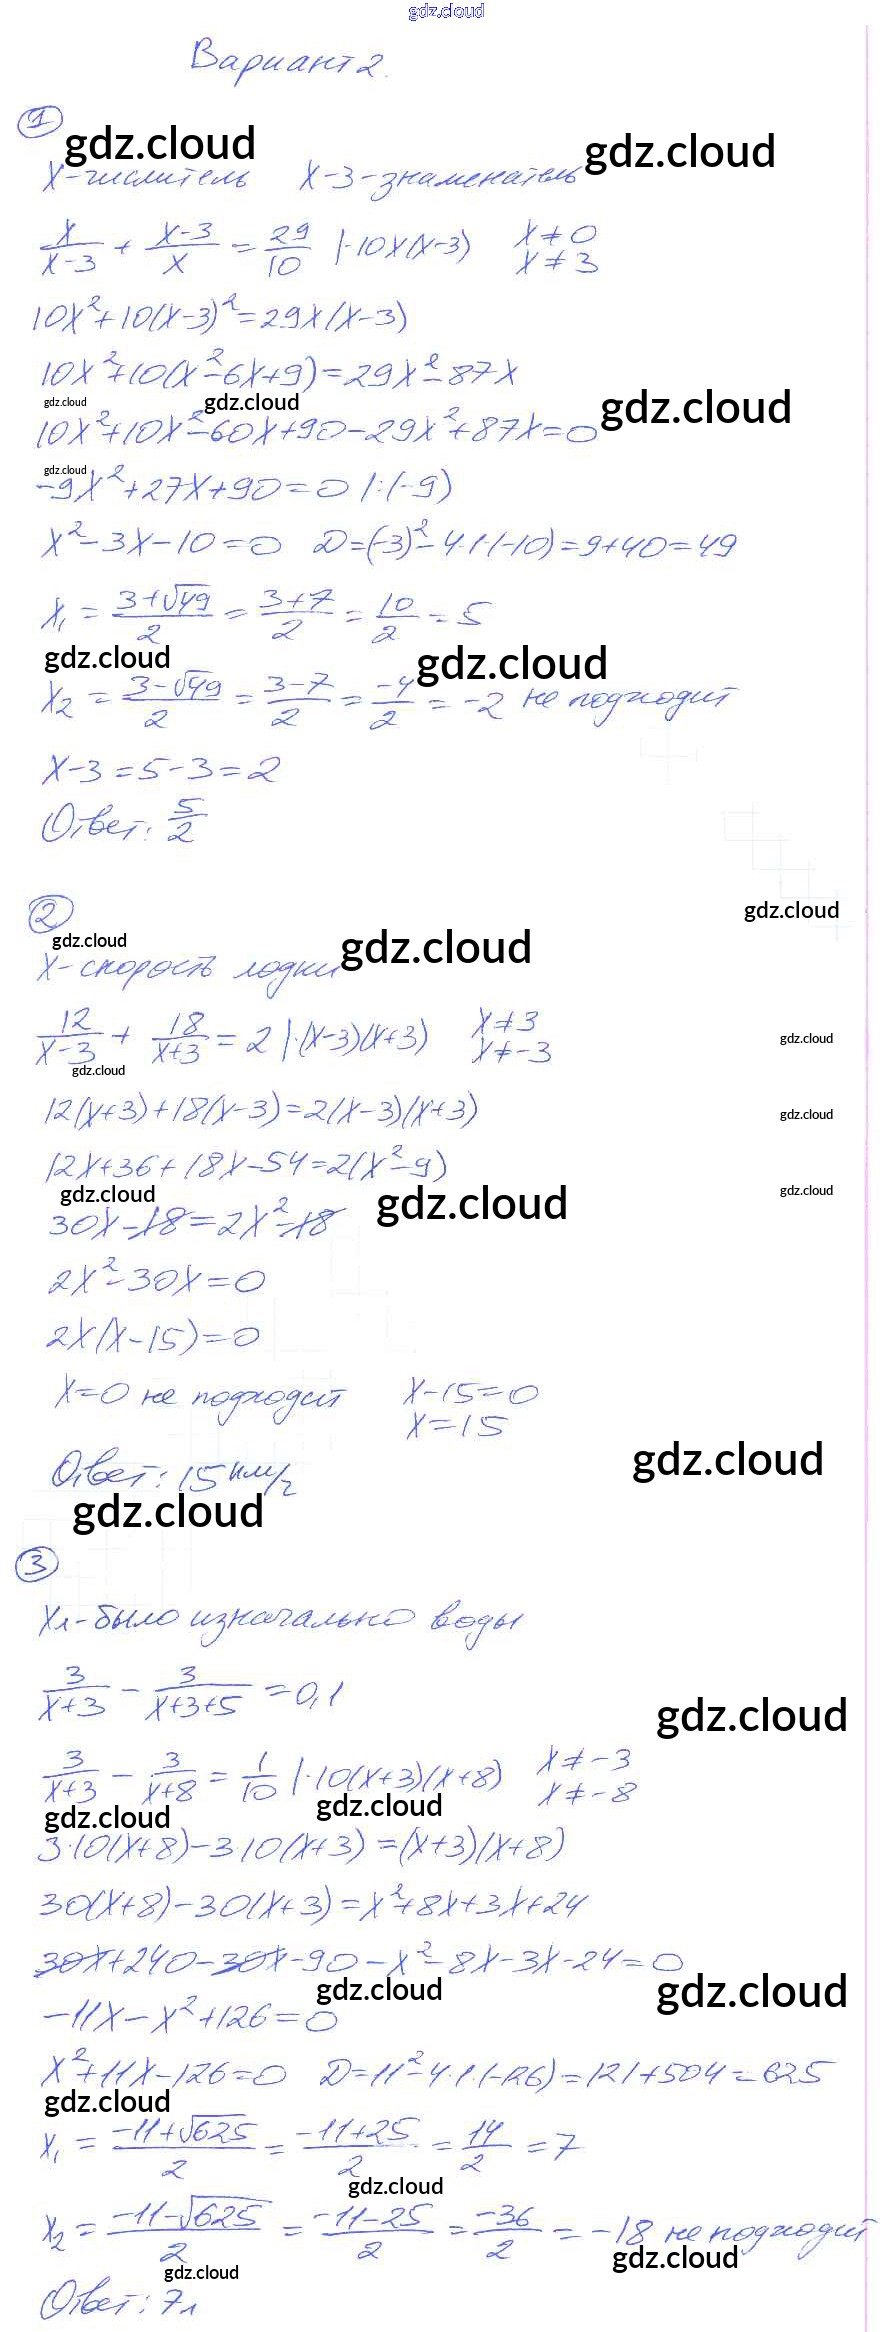 gdz.cloud
Вариант 2.
1
gdz.cloud gdz.cloud
x - числитель x-3 - знаменатель
x/(x-3) + (x-3)/x = 29/10 |·10x(x-3) x≠0
x≠3
10x²+10(x-3)²=29x(x-3)
10x²+10(x²-6x+9)=29x²-87x
gdz.cloud gdz.cloud gdz.cloud
10x²+10x²-60x+90-29x²+87x=0
gdz.cloud
-9x²+27x+90=0 |:(-9)
x²-3x-10=0 D=(-3)²-4·1·(-10)=9+40=49
x₁ = (3+√49)/2 = (3+7)/2 = 10/2 = 5
gdz.cloud gdz.cloud
x₂ = (3-√49)/2 = (3-7)/2 = -4/2 = -2 не подходит
x-3=5-3=2
Ответ: 5/2
2
gdz.cloud
gdz.cloud gdz.cloud
x - скорость лодки
12/(x-3) + 18/(x+3) = 2 |·(x-3)(x+3) x≠3
x≠-3
gdz.cloud
gdz.cloud
12(x+3)+18(x-3)=2(x-3)(x+3)
gdz.cloud
12x+36+18x-54=2(x²-9)
gdz.cloud gdz.cloud gdz.cloud
30x-18=2x²-18
2x²-30x=0
2x(x-15)=0
x=0 не подходит x-15=0
x=15
gdz.cloud
Ответ: 15 км/ч
gdz.cloud
3
xл - было изначально воды
3/(x+3) - 3/(x+3+5) = 0,1
gdz.cloud
3/(x+3) - 3/(x+8) = 1/10 |·10(x+3)(x+8) x≠-3
x≠-8
gdz.cloud gdz.cloud
3·10(x+8)-3·10(x+3)=(x+3)(x+8)
30(x+8)-30(x+3)=x²+8x+3x+24
30x+240-30x-90-x²-8x-3x-24=0
gdz.cloud gdz.cloud
-11x-x²+126=0
x²+11x-126=0 D=11²-4·1·(-126)=121+504=625
gdz.cloud
x₁ = (-11+√625)/2 = (-11+25)/2 = 14/2 = 7
gdz.cloud
x₂ = (-11-√625)/2 = (-11-25)/2 = -36/2 = -18 не подходит
gdz.cloud
gdz.cloud
Ответ: 7л